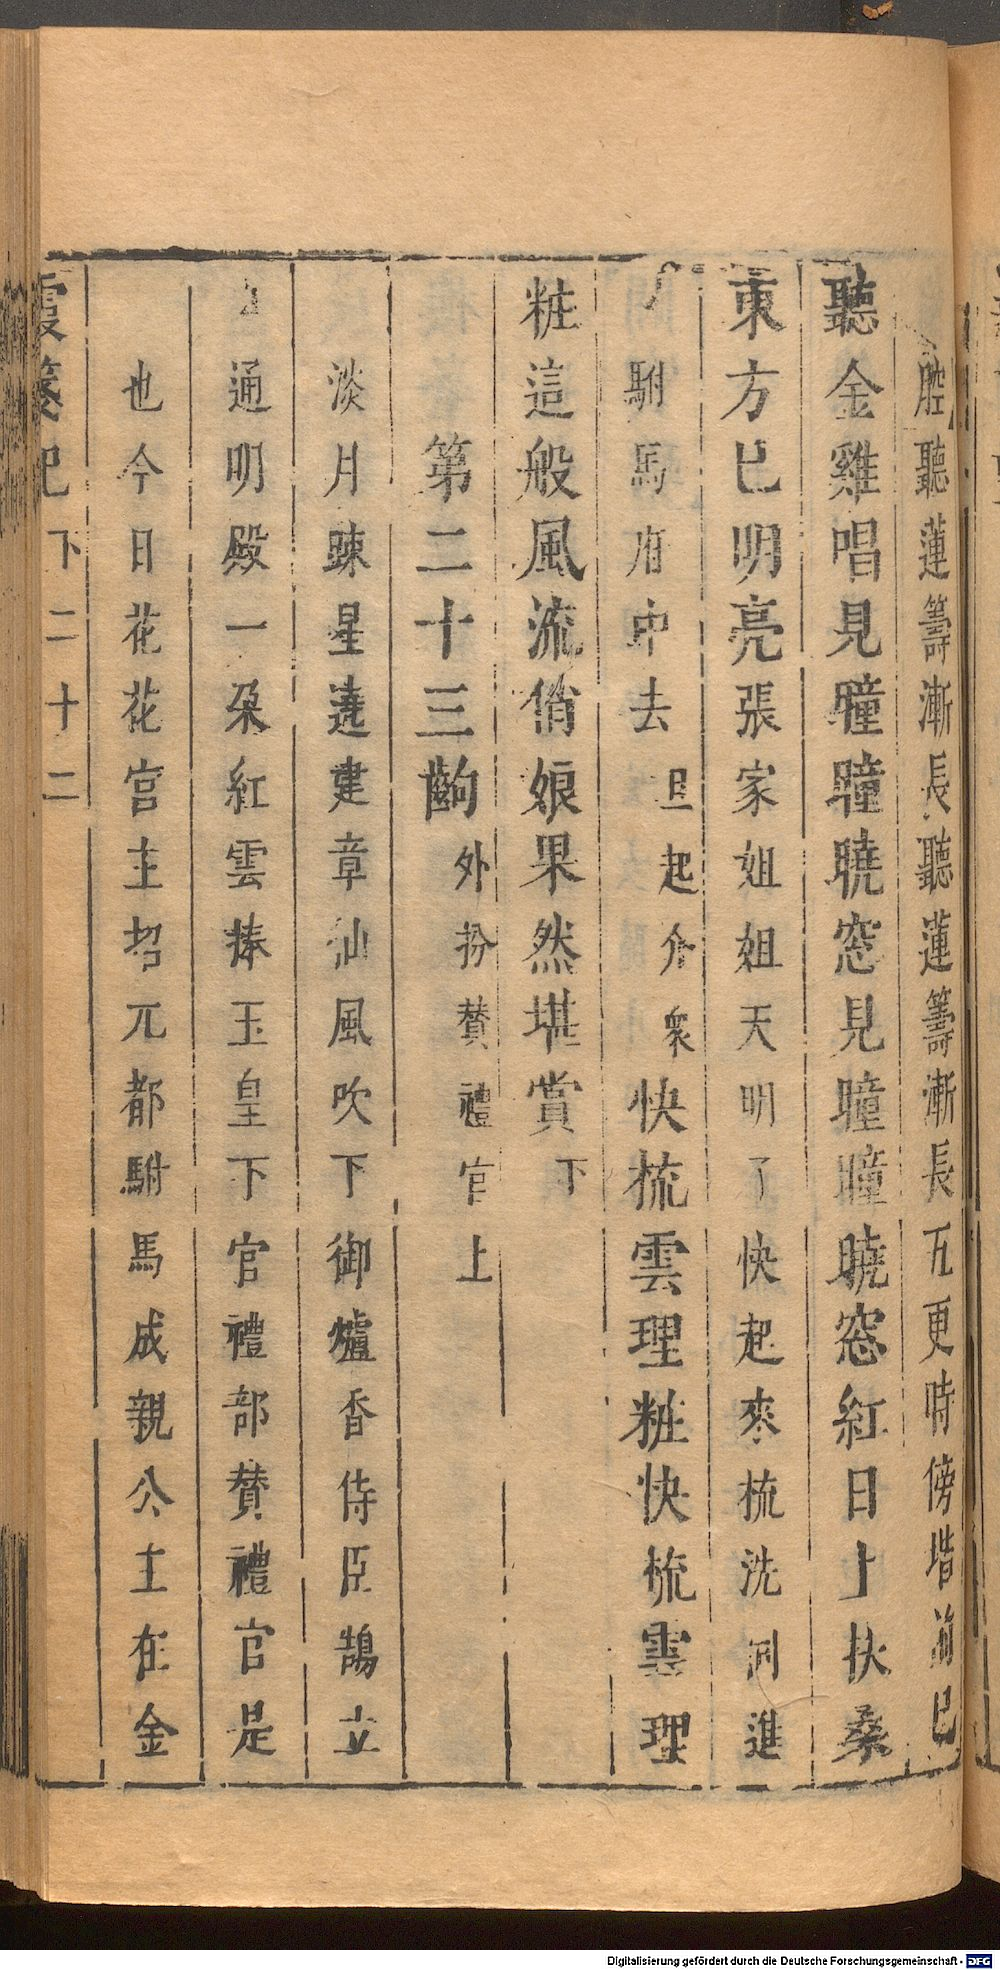 腔聽蓮籌漸長聽蓮籌漸長五更時傍堦前已
聽金雞唱見瞳瞳曉窓見瞳瞳曉窓紅日上扶桑
東方已明亮張家姐姐天明了快起來梳洗同進
駙馬府中去旦起介衆快梳雲理粧快梳雲理
粧這般風流俏娘果然堪賞下
第二十三齣外扮賛禮官上
淡月踈星遶建章仙風吹下御爐香侍臣鵠立
通明殿一朶紅雲捧玉皇下官禮部賛禮官是
也今日花花宮主招兀都駙馬成親公主在金
霞箋記 下二十二
Digitalisierung gefördert durch die Deutsche Forschungsgemeinschaft - DFG